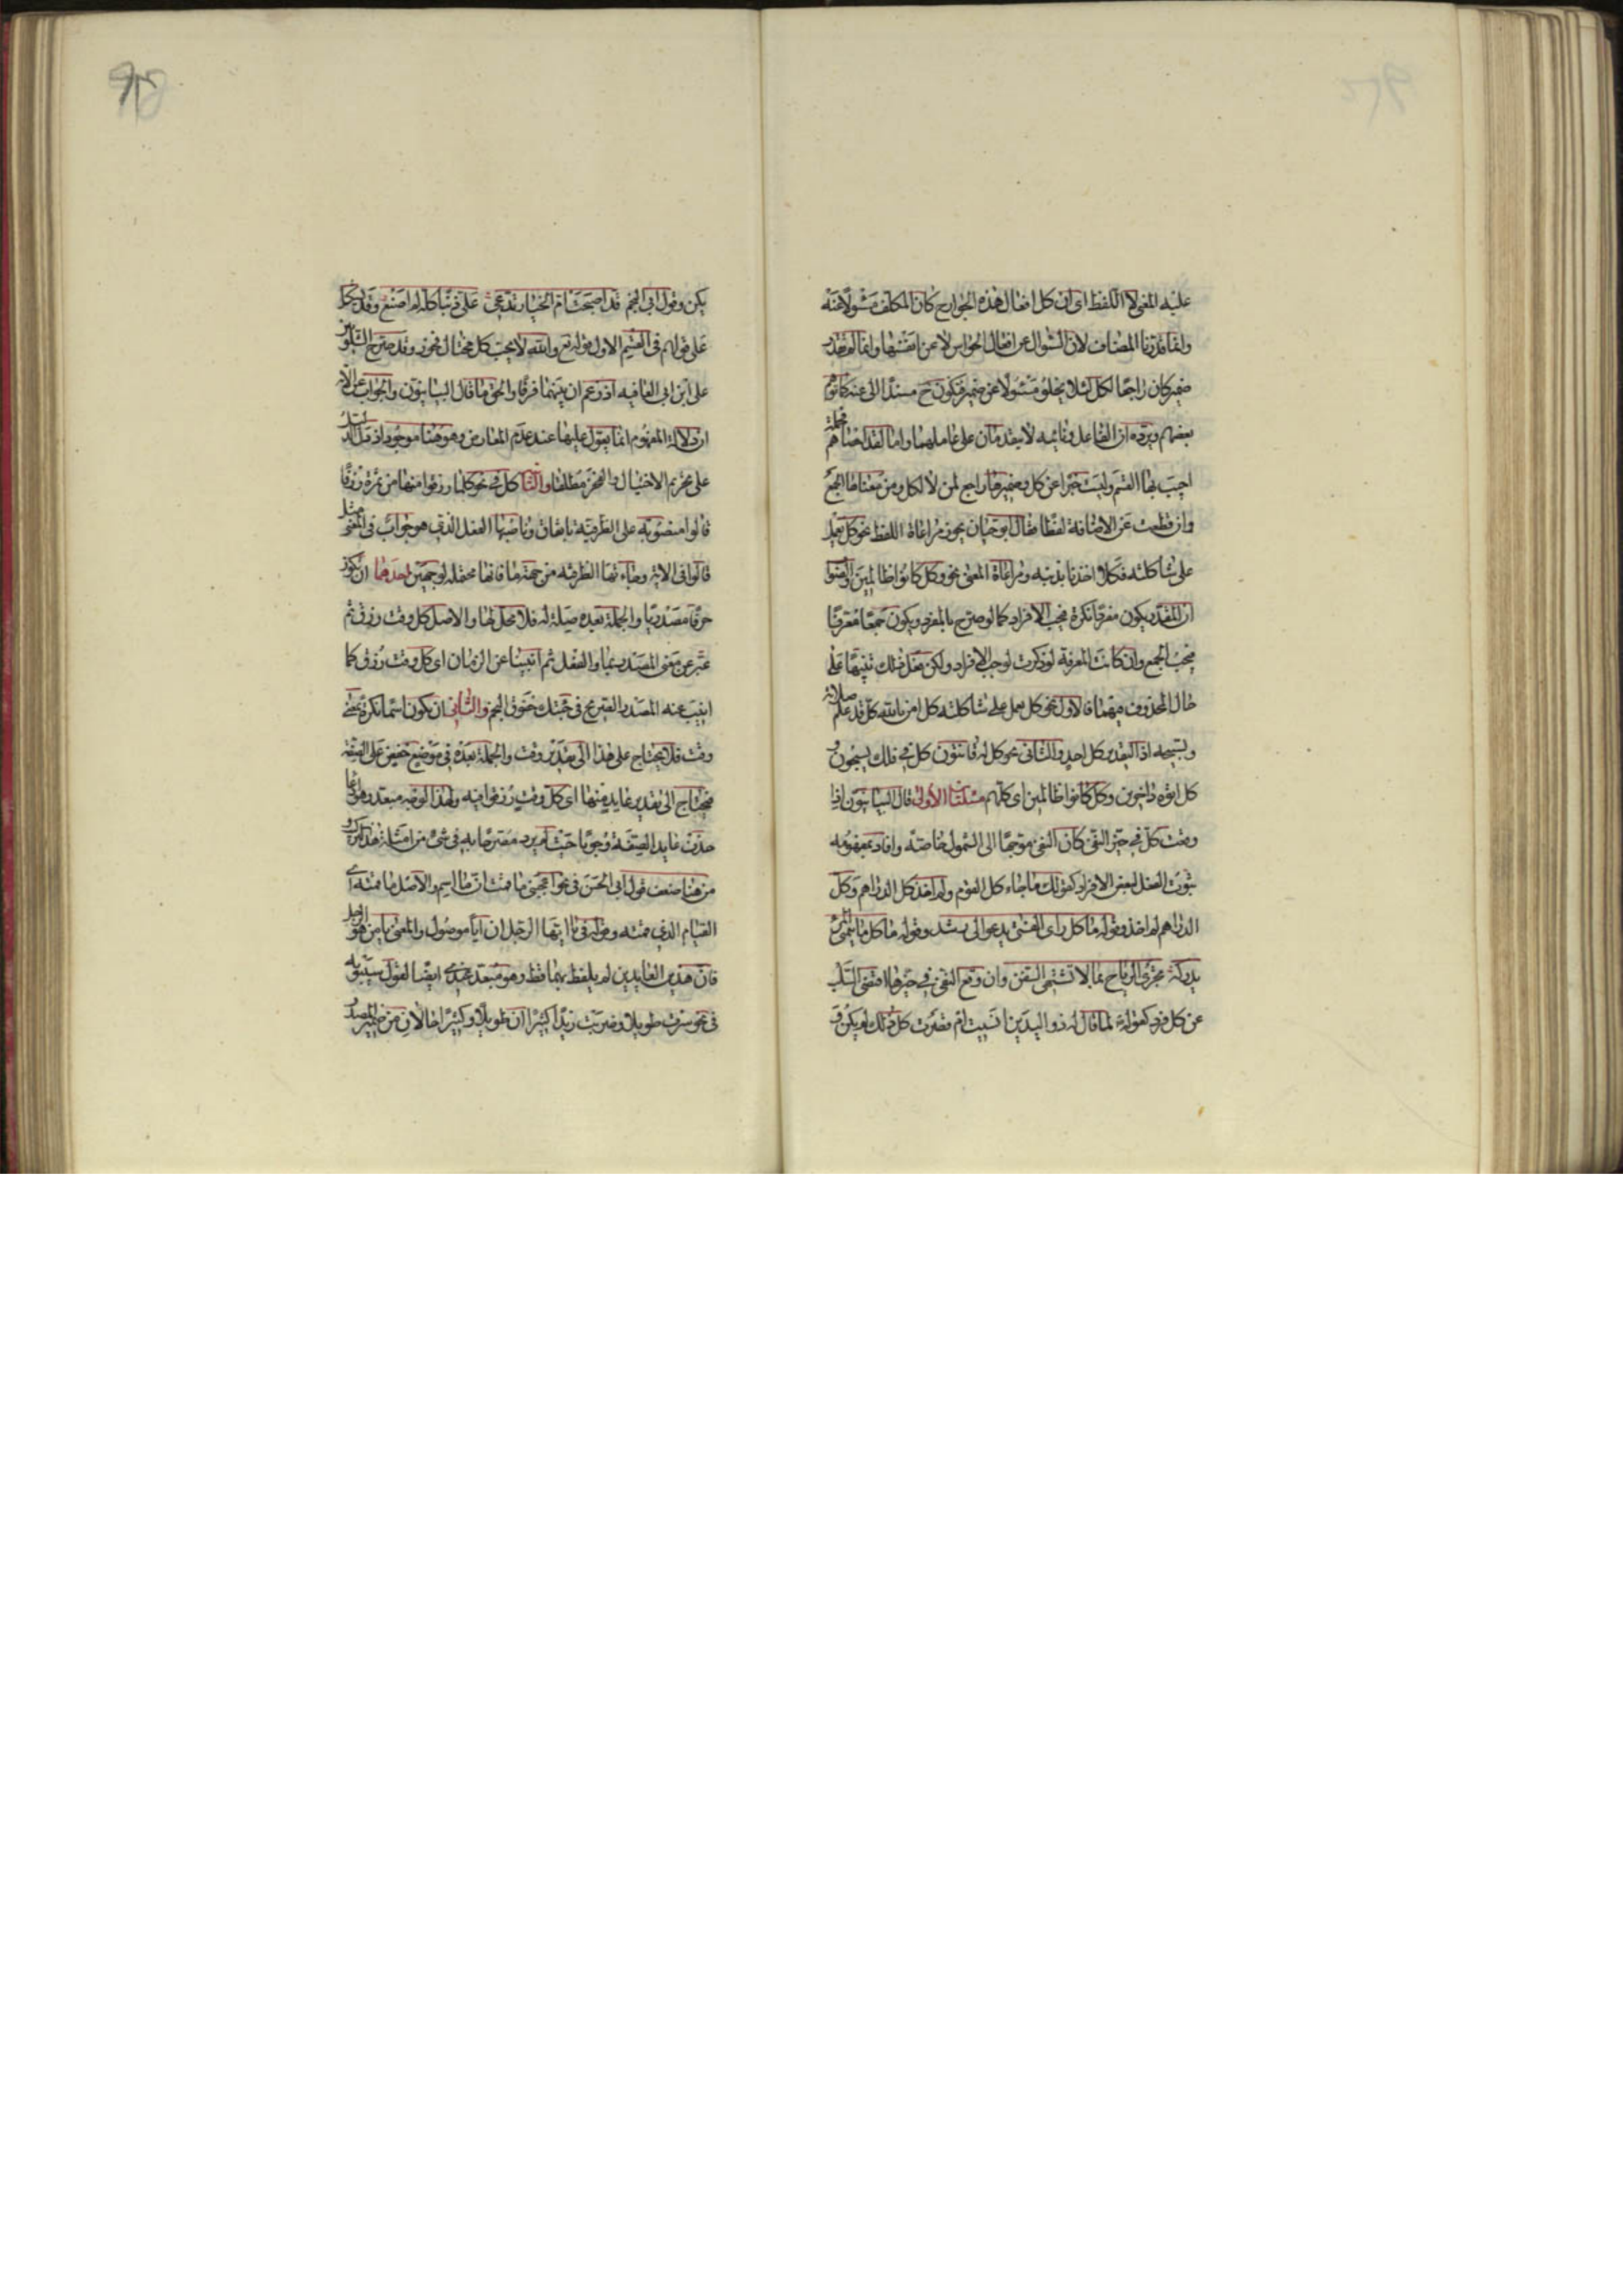 عليه المعنى لا اللفظ اى ان كل افعال هذه الجوارح كان المكلف مسئولا عنه
وانما قدرنا المضاف لان السؤال عن افعال الحواس لا عن انفسها وانما لم يقدر
ضمير كان راجعا لكل لئلا يخلو مسئولا عن ضمير فيكون ح مسندا الى عنه كما توهم
بعضهم ويرده ان الفاعل ونائبه لا يتقدمان على عاملهما واما لقد احصاهم فجملة
اجيب بها القسم وليست خبرا عن كل وضميرها راجع لمن لا لكل ومن معناها الجمع
وان قطعت عن الاضافة لفظا فقال ابو حيان يجوز مراعاة اللفظ نحو كل يعمل
على شاكلته فكلا اخذنا بذنبه ومراعاة المعنى نحو وكل كانوا ظالمين والصواب
ان المقدر يكون مفردا نكرة فيجب الافراد كما لو صرح بالمفرد ويكون جمعا معرفا
فيجب الجمع وان كانت المعرفة لو ذكرت لوجب الافراد ولكن فعل ذلك تنبيها على
حال المحذوف فيهما فالاول نحو كل يعمل على شاكلته كل امن بالله كل قد علم صلاته
وتسبيحه اذ التقدير كل احد والثانى نحو كل له قانتون كل فى فلك يسبحون و
كل اتوه داخرين وكل كانوا ظالمين اى كلهم مسئلتان الاولى قال البيانيون اذا
وقعت كل فى حيز النفى كان النفى موجها الى الشمول خاصة وافاد بمفهومه
ثبوت الفعل لبعض الافراد كقولك ما جاء كل القوم ولم اخذ كل الدراهم وكل
الدراهم لم اخذ وقوله ما كل راى الفتى يدعو الى رشد وقوله ما كل ما يتمنى المرء
يدركه تجرى الرياح بما لا تشتهى السفن وان وقع النفى فى حيزها اقتضى السلب
عن كل فرد كقوله لما قال له ذو اليدين انسيت ام قصرت كل ذلك لم يكن و
يكن وقول ابى النجم قد اصبحت ام الخيار تدعى على ذنبا كله لم اصنع وقد يشكل
على قولهم فى القسم الاول قوله تع والله لا يحب كل مختال فخور وقد صرح الشلوبين
على ابن ابى العافيه اذ زعم ان بينهما فرقا والحق ما قال البيانيون والجواب عن الآية
ان دلالة المفهوم انما يعول عليها عند عدم المعارض وهو هنا موجود اذ دل الدليل
على تحريم الاختيال والفخر مطلقا والثانية كل فى نحو كلما رزقوا منها من ثمرة رزقا
قالوا منصوبه على الظرفيه باتفاق وناصبها الفعل الذى هو جواب فى المعنى مثل
قالوا فى الاية وجاءتها الظرفيه من جهة ما فانها محتمله لوجهين احدهما ان تكون
حرفا مصدريا والجملة بعده صلة له فلا محل لها والاصل كل وقت رزق ثم
عبر عن معنى المصدر بما والفعل ثم انيبا عن الزمان اى كل وقت رزق كما
انيب عنه المصدر الصريح فى جئتك خفوق النجم والثانى ان تكون اسما نكرة بمعنى
وقت فلا يحتاج على هذا الى تقدير وقت والجملة بعده فى موضع خفض على الصفة
فيحتاج الى تقدير عايد منها اى كل وقت رزقوا فيه ولهذا الوجه مبعد وهو ادعا
حذف عايد الصفة وجوبا حيث لم يرد مصرحا به فى شئ من امثلة هذا
من هنا ضعف قول ابى الحسن فى نحو اعجبنى ما قمت ان ما اسم والاصل ما قمته اى
القيام الذى قمته وقوله فى يا ايها الرجل ان ايا موصول والمعنى يا من هو الرجل
فان هذين العايدين لم يلفظ بهما قط وهو مبعد عندى ايضا لقول سيبويه
فى نحو سرت طويلا وضربت زيدا كثيرا ان طويلا وكثيرا حالان من ضمير المصدر